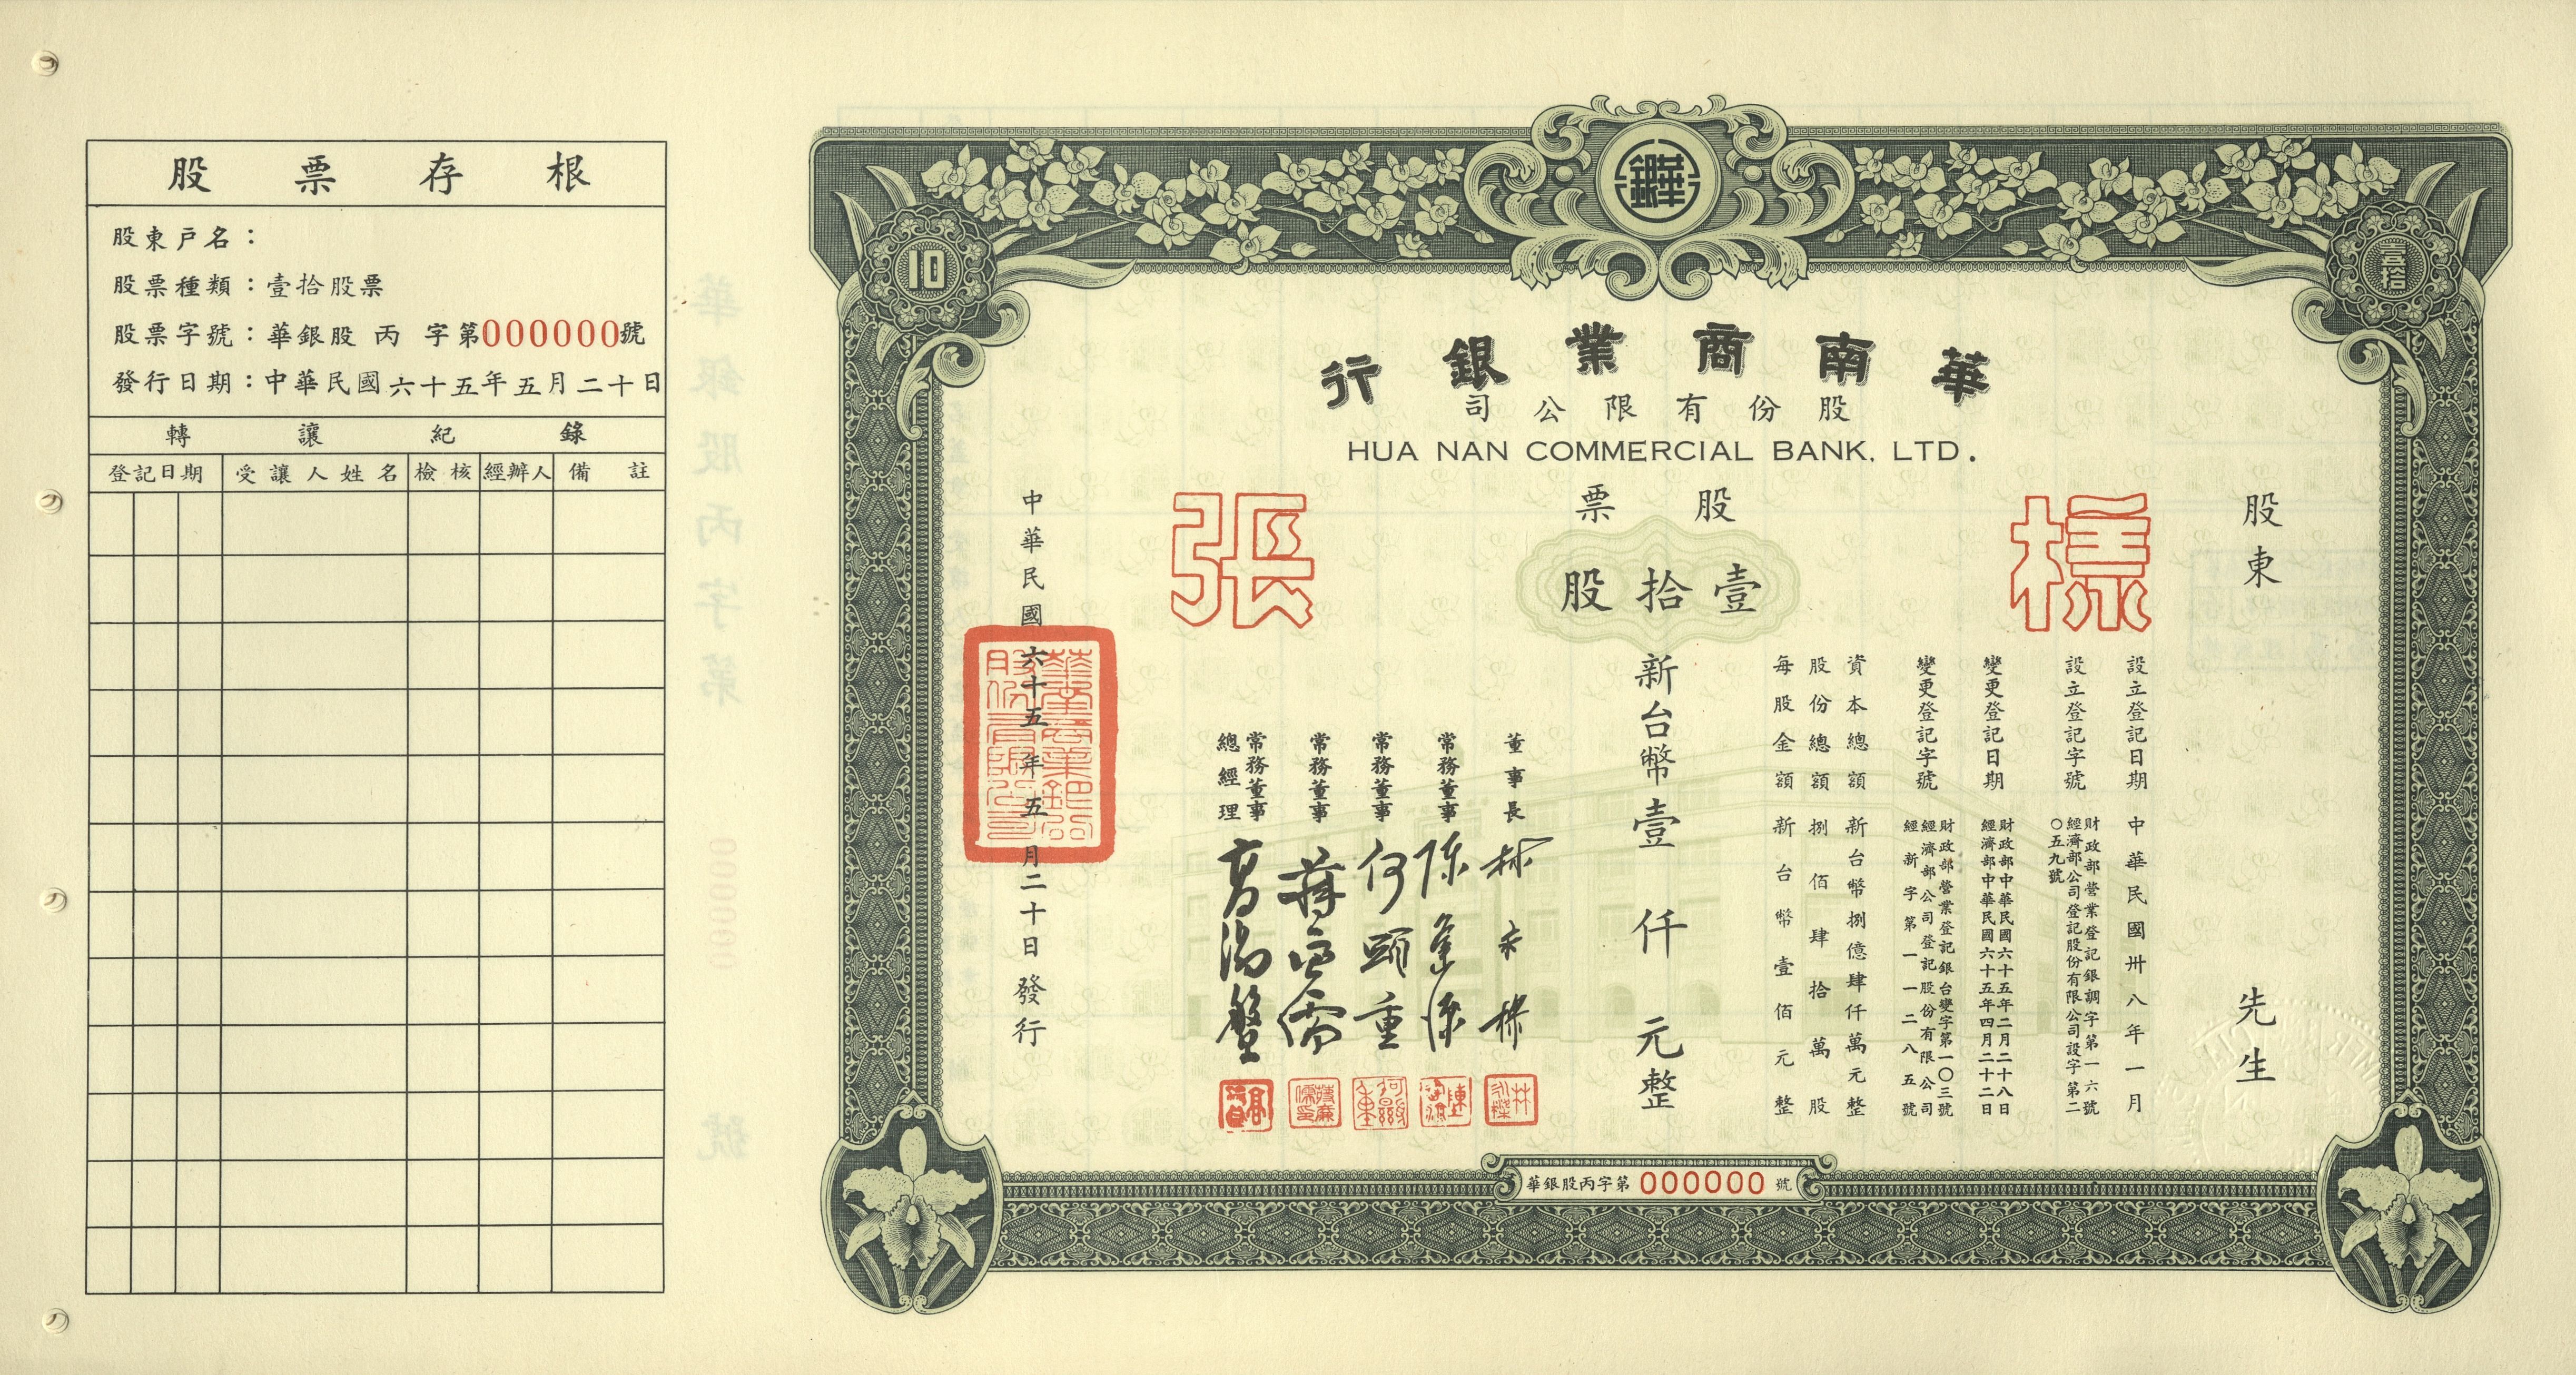 股票存根
股東戶名：
股票種類：壹拾股票
股票字號：華銀股 丙 字第000000號
發行日期：中華民國六十五年五月二十日
轉讓紀錄
登記日期 受讓人姓名 檢核 經辦人 備註
華銀
10
壹拾
華南商業銀行
股份有限公司
HUA NAN COMMERCIAL BANK, LTD.
股票
樣張
壹拾股
股東 先生
設立登記日期 中華民國卅八年一月
設立登記字號 財政部營業登記銀調字第一六號
經濟部公司登記股份有限公司設字第二
〇五九號
變更登記日期 財政部中華民國六十五年二月二十八日
經濟部中華民國六十五年四月二十二日
變更登記字號 財政部營業登記銀台變字第一〇三號
經濟部公司登記股份有限公司
經新字第一一二八五號
資本總額 新台幣捌億肆仟萬元整
股份總額 捌佰肆拾萬股
每股金額 新台幣壹佰元整
新台幣壹仟元整
董事長 林永樑
常務董事
常務董事 何顯重
常務董事
常務董事
總經理
中華民國六十五年五月二十日發行
華銀股丙字第 000000 號